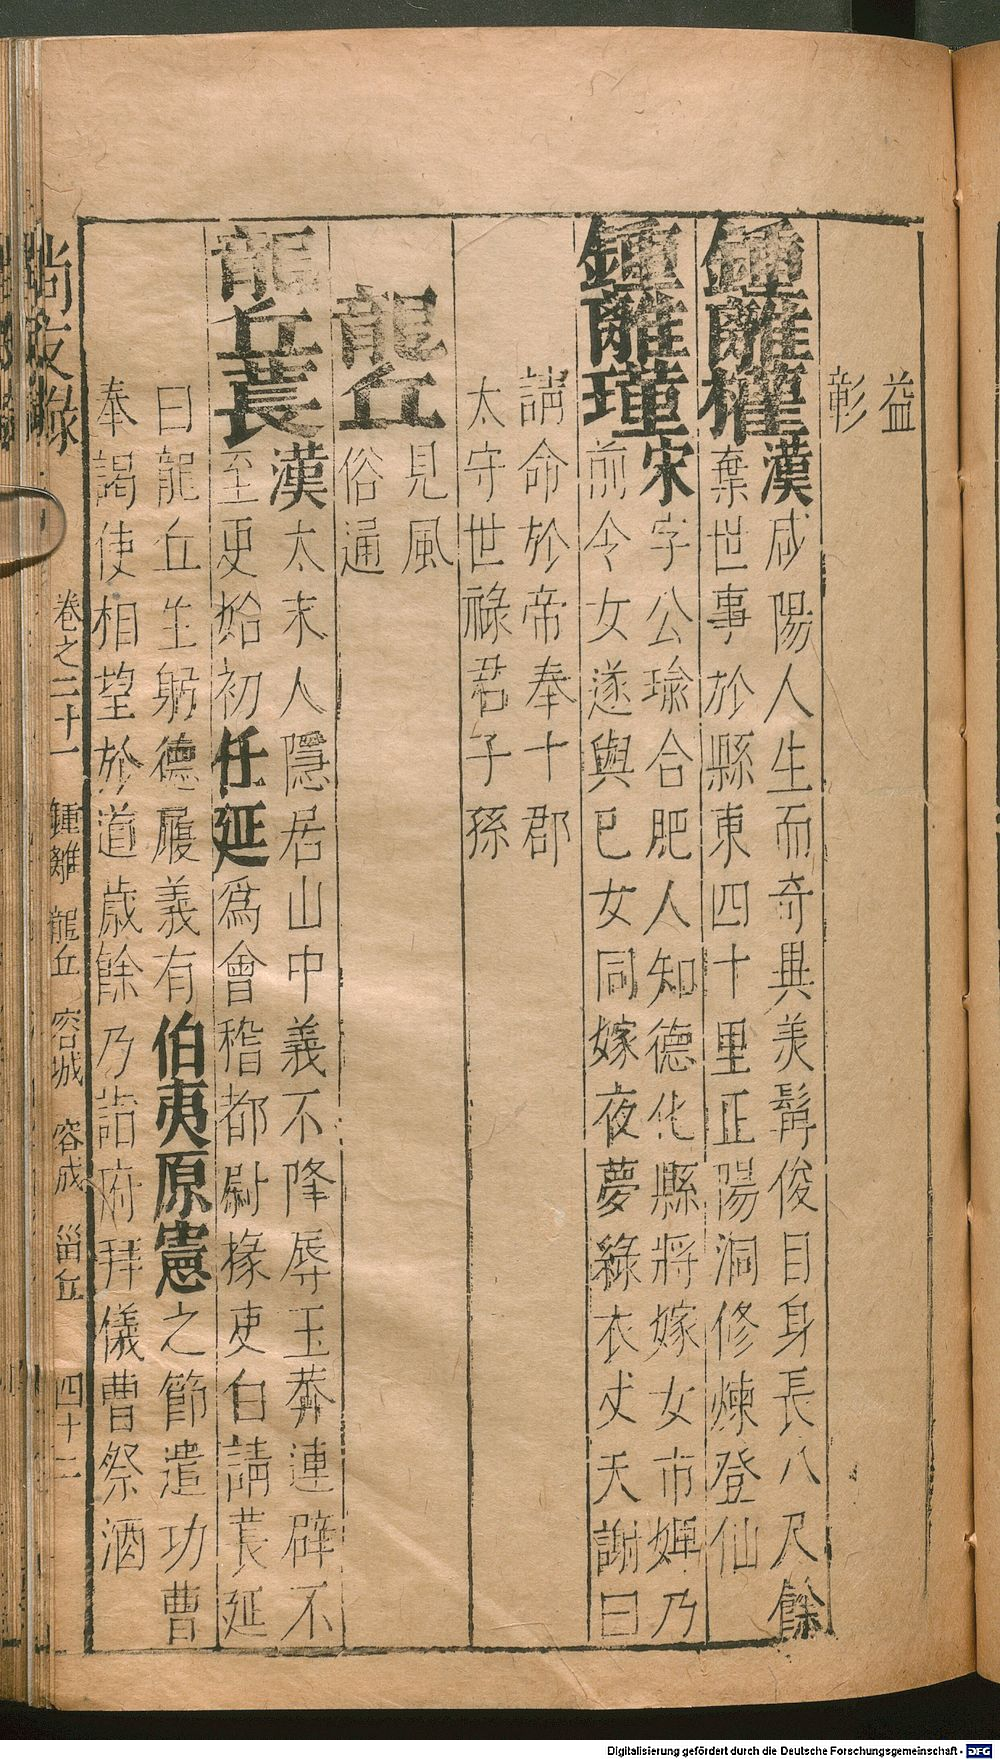 益
彰
鍾離權漢咸陽人生而奇異美髯俊目身長八尺餘
棄世事於縣東四十里正陽洞修煉登仙
鍾離瑾宋字公瑜合肥人知德化縣將嫁女市婢乃
前令女遂與己女同嫁夜夢綠衣丈夫謝曰
請命於帝奉十郡
太守世祿君子孫
龍丘見風
俗通
龍丘萇漢太末人隱居山中義不降辱王莽連辟不
至更始初任延爲會稽都尉掾吏白請萇延
曰龍丘生躬德履義有伯夷原憲之節遣功曹
奉謁使相望於道歲餘乃詣府拜儀曹祭酒
尚友錄 卷之二十一 鍾離 龍丘 容城 容成 甾丘 四十二
Digitalisierung gefördert durch die Deutsche Forschungsgemeinschaft - DFG